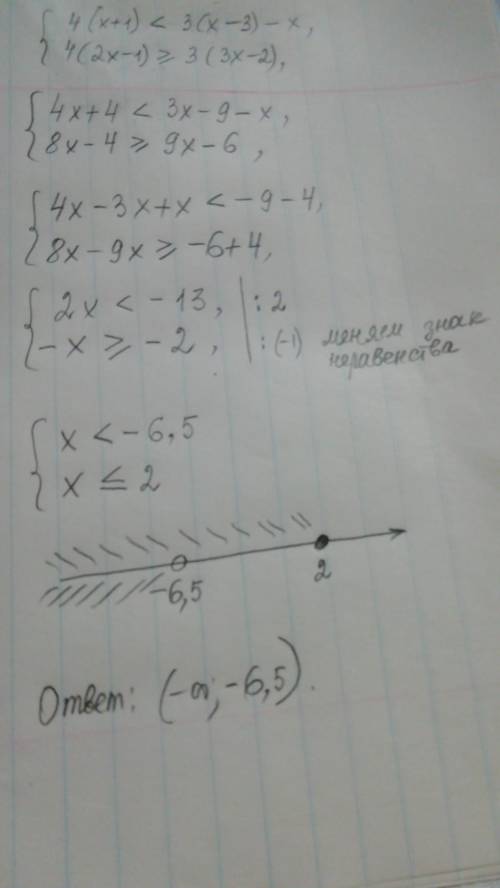 { 4(x+1) < 3(x-3)-x,
4(2x-1) ≥ 3(3x-2),
{ 4x+4 < 3x-9-x,
8x-4 ≥ 9x-6,
{ 4x-3x+x < -9-4,
8x-9x ≥ -6+4,
{ 2x < -13, | :2
-x ≥ -2, | :(-1) меняем знак неравенства
{ x < -6,5
x ≤ 2
-6,5 2
Ответ: (-∞; -6,5).